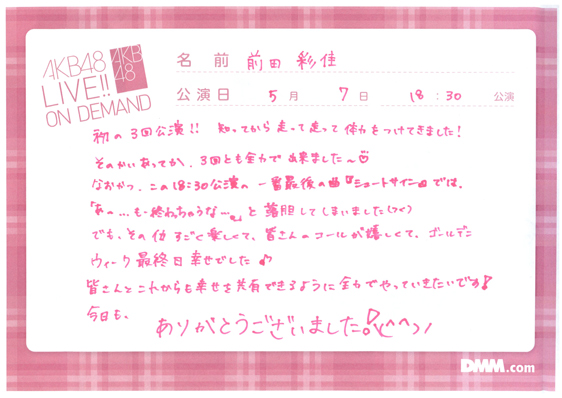 AKB48
LIVE!!
ON DEMAND
AKB
48
名 前 前田 彩佳
公演日 5月 7日 18:30 公演
初の3回公演!! 知ってから走って走って体力をつけてきました!
そのかいあってか、3回とも全力で出来ました〜♡
なおかつ、この18:30公演の一番最後の曲『シュートサイン』では、
「あ〜…もー終わっちゃうな…。」と落胆してしまいました(つく)
でも、その位すごく楽しくて、皆さんのコールが嬉しくて、ゴールデン
ウィーク最終日幸せでした♪
皆さんとこれからも幸せを共有できるように全力でやっていきたいです!
今日も、
ありがとうございました!(^^)ノ
DMM.com